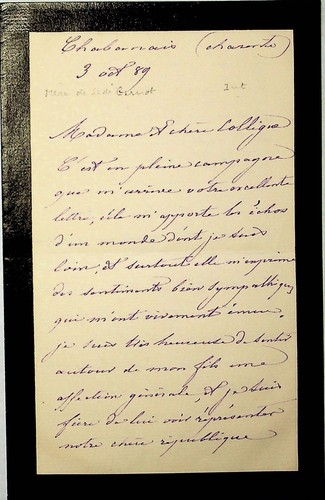 Chabanais (charente)
3 oct 89
Mère de Sadi Carnot
Madame et chère Collègue
C'est en pleine campagne
que m'arrive votre excellente
lettre, elle m'apporte les échos
d'un monde dont je suis
loin, et surtout elle m'exprime
des sentiments bien sympathiques
qui m'ont vivement émue.
je suis très heureuse de sentir
autour de mon fils une
affection générale, et je suis
fière de lui voir représenter
notre chère république